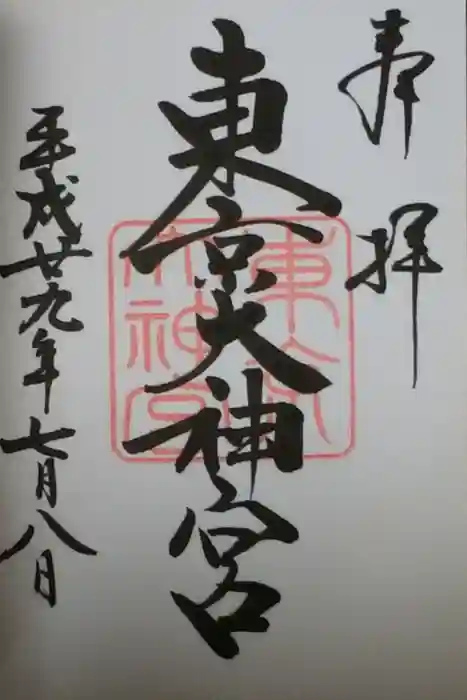 奉拝
東京大神宮
東京大神宮
平成廿九年七月八日